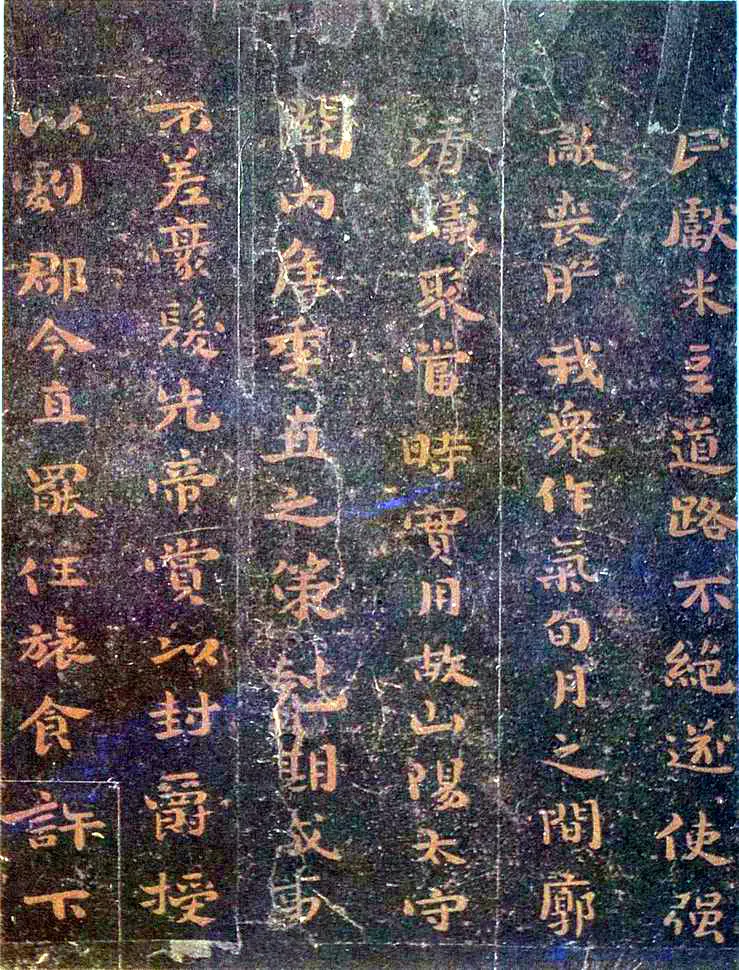 民獻米豆道路不絶遂使强
敵喪膽我衆作氣旬月之間廓
清蟻聚當時實用故山陽太守
關内侯季直之策尅期成事
不差豪髮先帝賞以封爵授
以劇郡今直罷任旅食許下